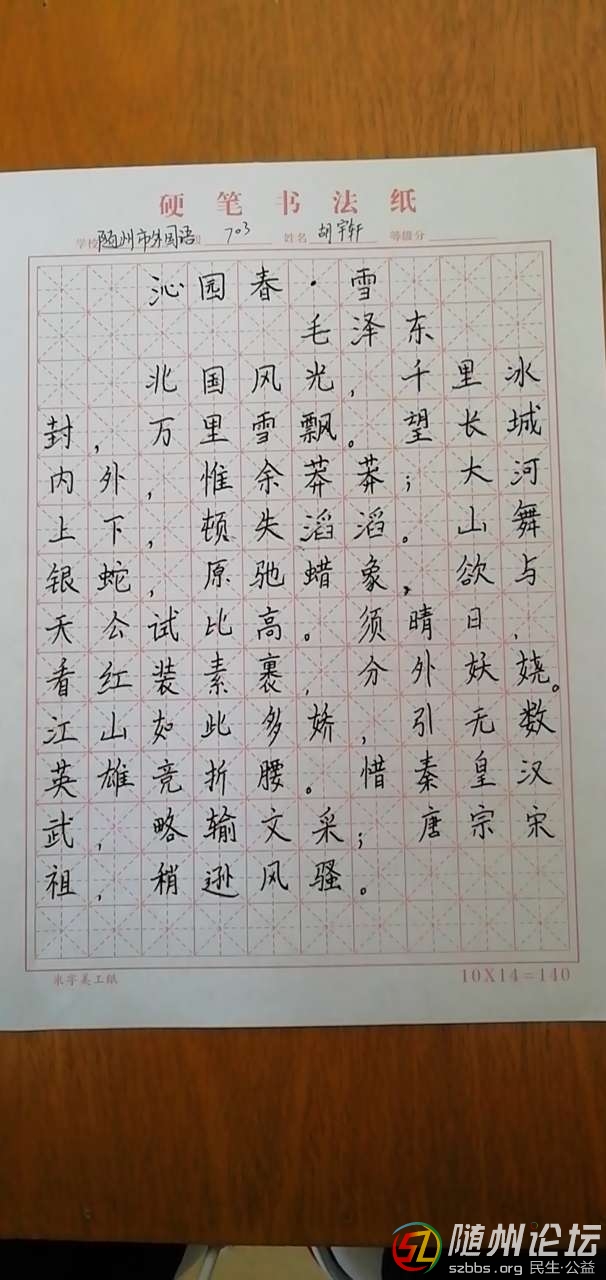 硬笔书法纸
学校 随州市外国语 703 姓名 胡宇轩 等级分
沁园春·雪
毛泽东
北国风光，千里冰
封，万里雪飘。望长城
内外，惟余莽莽；大河
上下，顿失滔滔。山舞
银蛇，原驰蜡象，欲与
天公试比高。须晴日，
看红装素裹，分外妖娆。
江山如此多娇，引无数
英雄竞折腰。惜秦皇汉
武，略输文采；唐宗宋
祖，稍逊风骚。
米字美工纸 10X14=140
随州论坛
szbbs.org 民生·公益